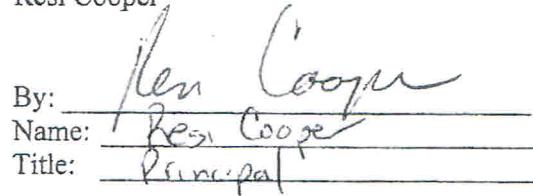 Resi Cooper
By: Resi Cooper
Name: Resi Cooper
Title: Principal